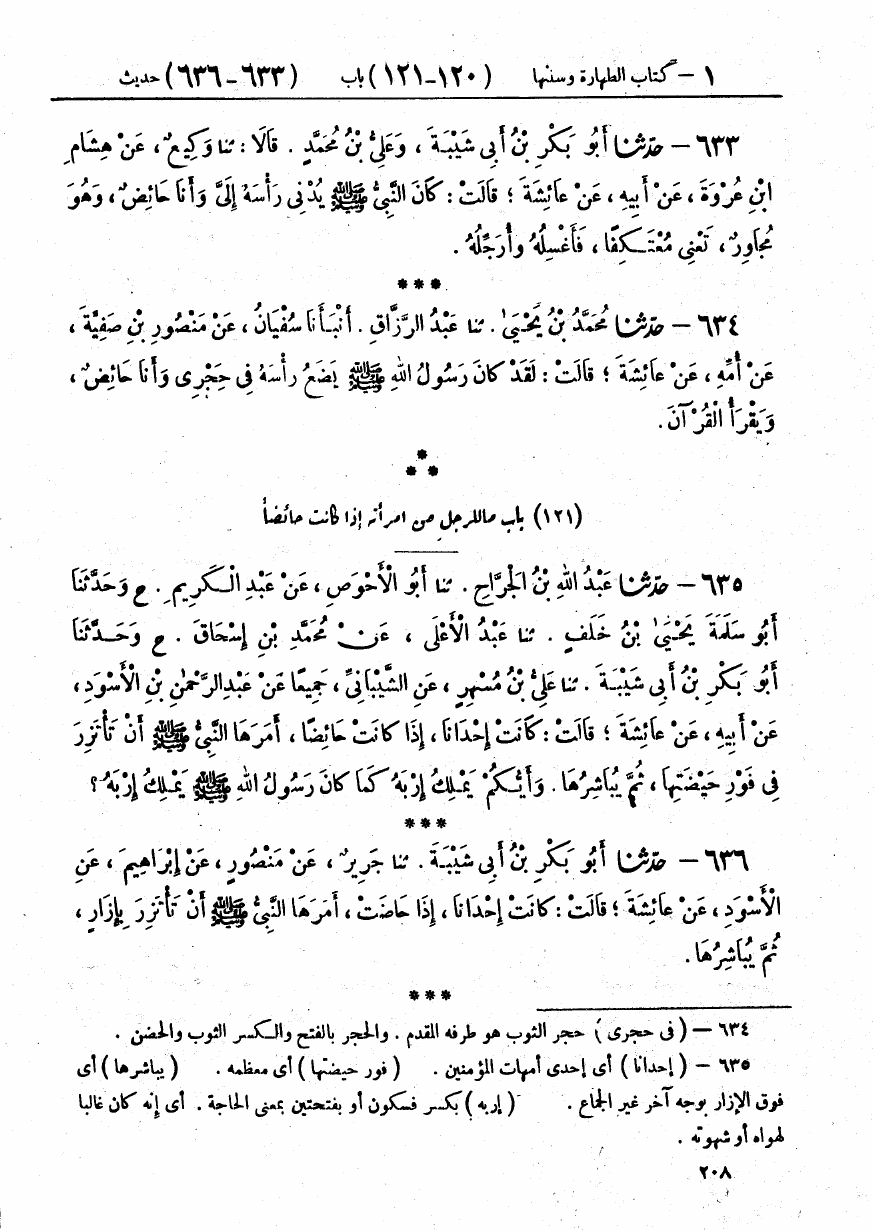 ١ – كتاب الطهارة وسننها (١٢٠–١٢١) باب (٦٣٣–٦٣٦) حديث
٦٣٣ – حَدَّثَنَا أَبُو بَكْرِ بْنُ أَبِي شَيْبَةَ ، وَعَلِيُّ بْنُ مُحَمَّدٍ . قَالَا : ثنا وَكِيعٌ ، عَنْ هِشَامِ
ابْنِ عُرْوَةَ ، عَنْ أَبِيهِ ، عَنْ عَائِشَةَ ؛ قَالَتْ : كَانَ النَّبِيُّ ﷺ يُدْنِي رَأْسَهُ إِلَيَّ وَأَنَا حَائِضٌ ، وَهُوَ
مُجَاوِرٌ ، تَعْنِي مُعْتَكِفًا ، فَأَغْسِلُهُ وَأُرَجِّلُهُ .
***
٦٣٤ – حَدَّثَنَا مُحَمَّدُ بْنُ يَحْيَىٰ . ثنا عَبْدُ الرَّزَّاقِ . أَنْبَأَنَا سُفْيَانُ ، عَنْ مَنْصُورِ بْنِ صَفِيَّةَ ،
عَنْ أُمِّهِ ، عَنْ عَائِشَةَ ؛ قَالَتْ : لَقَدْ كَانَ رَسُولُ اللهِ ﷺ يَضَعُ رَأْسَهُ فِي حِجْرِى وَأَنَا حَائِضٌ ،
وَيَقْرَأُ الْقُرْآنَ .
***
(١٢١) باب ما للرجل من امرأته إذا كانت حائضاً
٦٣٥ – حَدَّثَنَا عَبْدُ اللهِ بْنُ الْجَرَّاحِ . ثنا أَبُو الْأَحْوَصِ ، عَنْ عَبْدِ الْكَرِيمِ . ح وَحَدَّثَنَا
أَبُو سَلَمَةَ يَحْيَىٰ بْنُ خَلَفٍ . ثنا عَبْدُ الْأَعْلَى ، عَنْ مُحَمَّدِ بْنِ إِسْحَاقَ . ح وَحَدَّثَنَا
أَبُو بَكْرِ بْنُ أَبِي شَيْبَةَ . ثنا عَلِيُّ بْنُ مُسْهِرٍ ، عَنِ الشَّيْبَانِيِّ ، جَمِيعًا عَنْ عَبْدِ الرَّحْمٰنِ بْنِ الْأَسْوَدِ ،
عَنْ أَبِيهِ ، عَنْ عَائِشَةَ ؛ قَالَتْ : كَانَتْ إِحْدَانَا ، إِذَا كَانَتْ حَائِضًا ، أَمَرَهَا النَّبِيُّ ﷺ أَنْ تَأْتَزِرَ
فِي فَوْرِ حَيْضَتِهَا ، ثُمَّ يُبَاشِرُهَا . وَأَيُّكُمْ يَمْلِكُ إِرْبَهُ كَمَا كَانَ رَسُولُ اللهِ ﷺ يَمْلِكُ إِرْبَهُ ؟
***
٦٣٦ – حَدَّثَنَا أَبُو بَكْرِ بْنُ أَبِي شَيْبَةَ . ثنا جَرِيرٌ ، عَنْ مَنْصُورٍ ، عَنْ إِبْرَاهِيمَ ، عَنِ
الْأَسْوَدِ ، عَنْ عَائِشَةَ ؛ قَالَتْ : كَانَتْ إِحْدَانَا ، إِذَا حَاضَتْ ، أَمَرَهَا النَّبِيُّ ﷺ أَنْ تَأْتَزِرَ بِإِزَارٍ ،
ثُمَّ يُبَاشِرُهَا .
***
٦٣٤ – (فى حجرى) حجر الثوب هو طرفه المقدم . والحجر بالفتح والكسر الثوب والحضن .
٦٣٥ – (إحدانا) أى إحدى أمهات المؤمنين . (فور حيضتها) أى معظمه . (يباشرها) أى
فوق الإزار بوجه آخر غير الجماع . (إربه) بكسر فسكون أو بفتحتين بمعنى الحاجة . أى إنه كان غالبا
لهواه أو شهوته .
٢٠٨